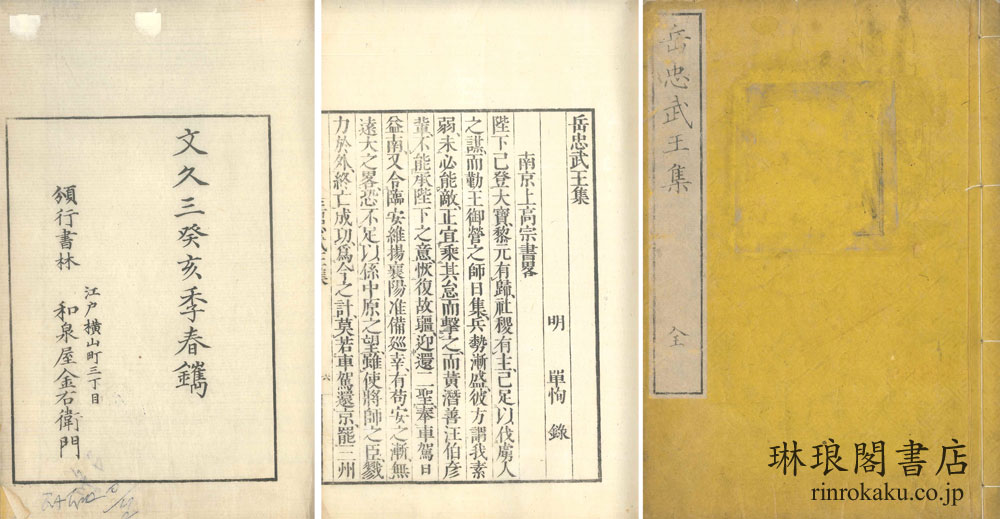 岳忠武王集
全
岳忠武王集
明 單恂 錄
南京上高宗書畧
陛下已登大寶黎元有歸社稷有主已足以伐虜人
之謀而勤王御營之師日集兵勢漸盛彼方謂我素
弱未必能敵正宜乘其怠而擊之而黃潛善汪伯彥
輩不能承陛下之意恢復故疆迎還二聖奉車駕日
益南又令臨安維揚襄陽准備巡幸有苟安之漸無
遠大之畧恐不足以係中原之望雖使將帥之臣戮
力於外終亡成功爲今之計莫若車駕還京罷三州
文久三癸亥季春鐫
頒行書林
江戸横山町三丁目
和泉屋金右衛門
琳琅閣書店
rinrokaku.co.jp